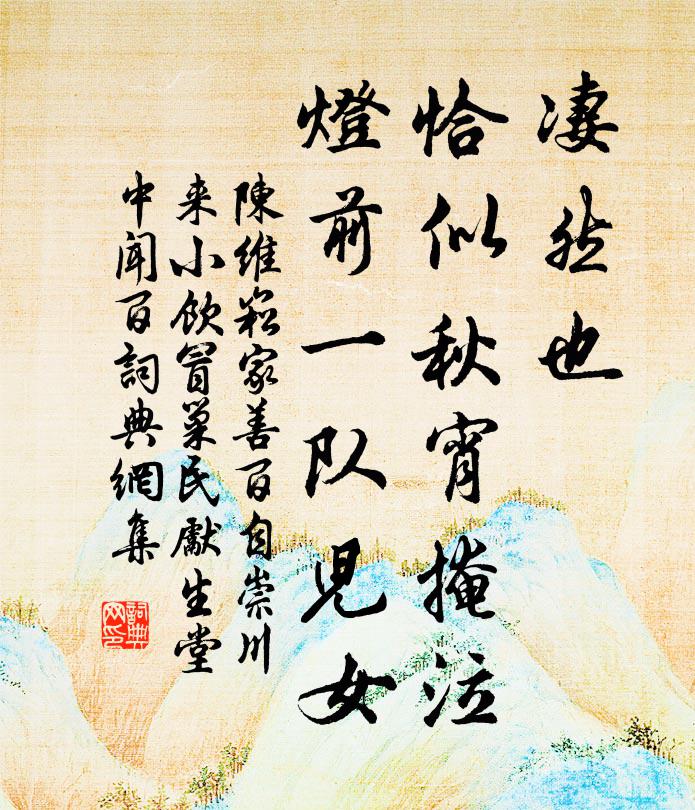 凄然也
恰似秋宵掩泣
燈前一队児女
陳維崧家善百自崇川
来小飲冒巢民處生堂
中闻百詞典網集
詞典